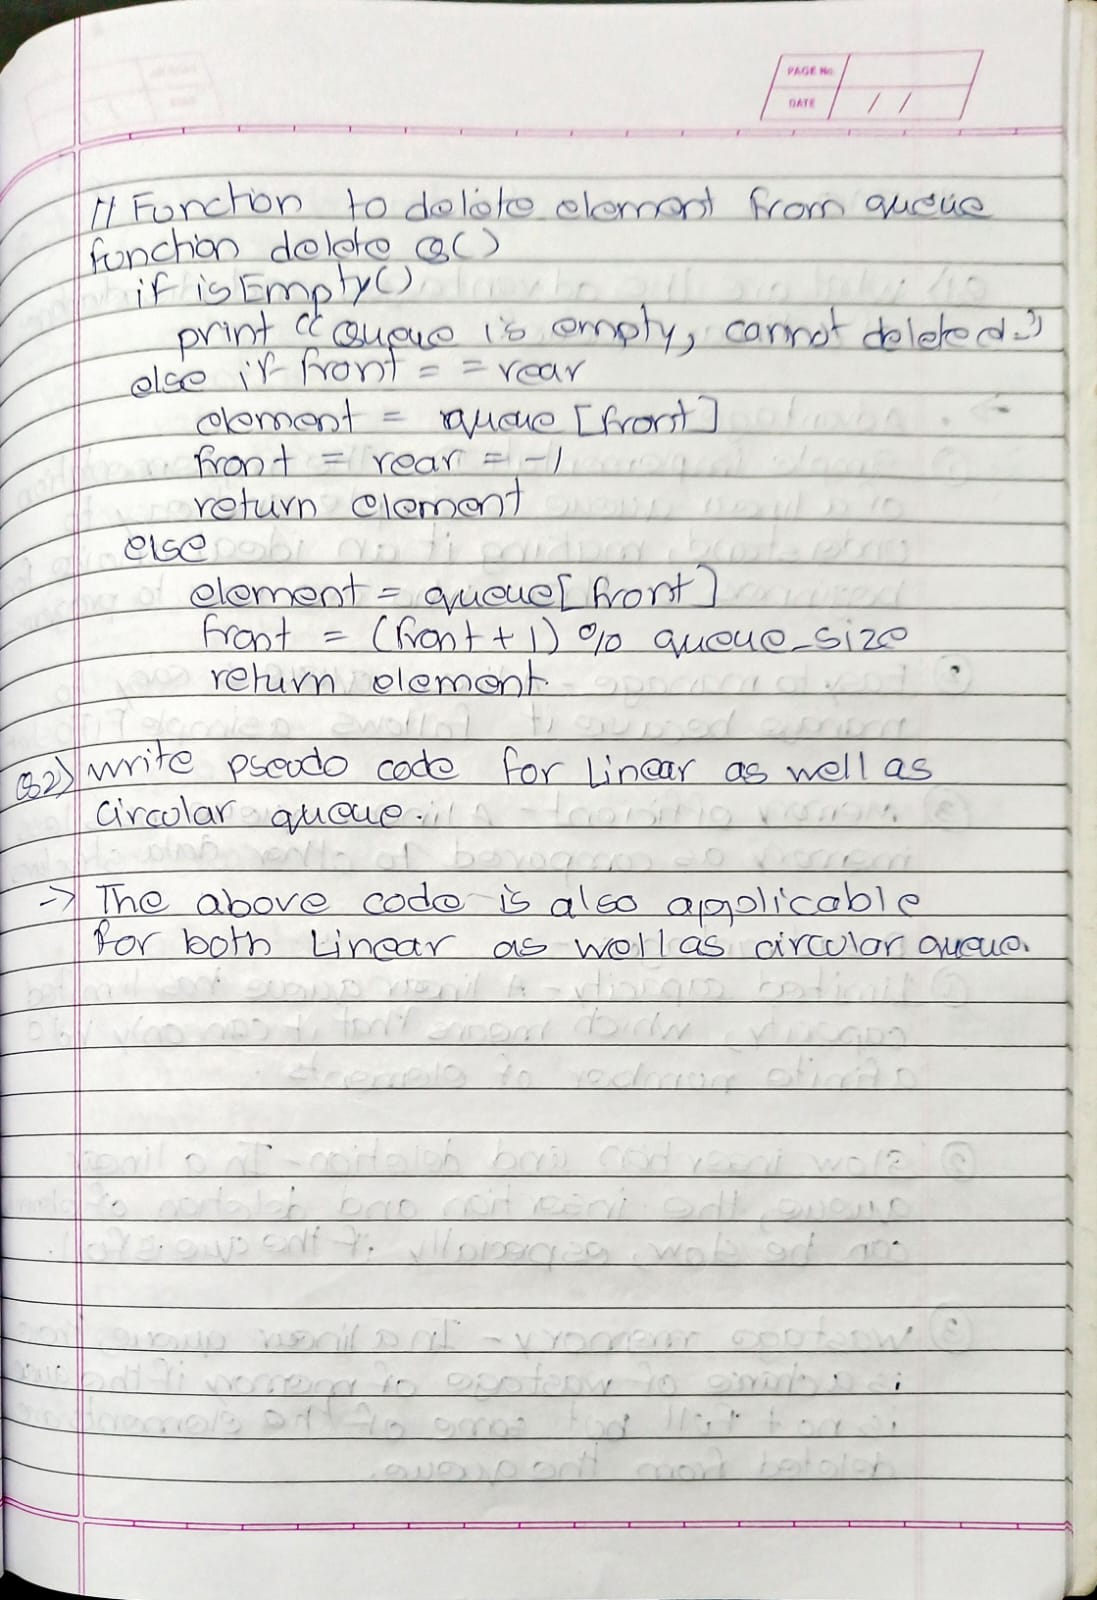 PAGE No.
DATE / /
// Function to delete element from queue
function delete Q()
if isEmpty()
print "Queue is empty, cannot deleted."
else if front == rear
element = queue [front]
front = rear = -1
return element
else
element = queue[front]
front = (front + 1) % queue_size
return element.
Q2) Write pseudo code for Linear as well as
circular queue.
-> The above code is also applicable
for both Linear as well as circular queue.